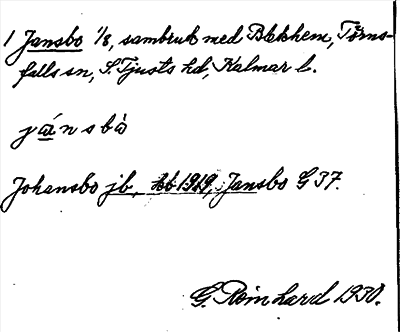 1 Jansbo 1/8, sambruk med Blekhem, Törns-
falls sn, S. Tjusts hd, Kalmar l.
jänsbò
Johansbo jb, hb 1919, Jansbo G 37.
G. Reinhard 1930.